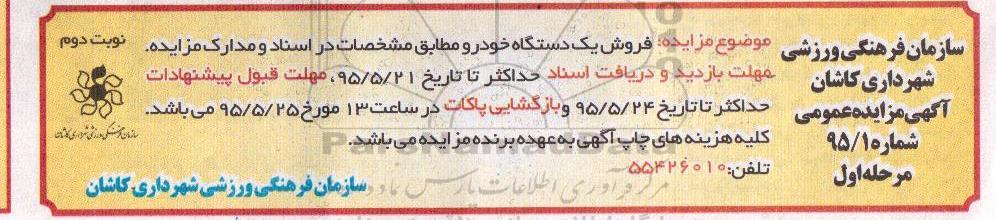 سازمان فرهنگی ورزشی
شهرداری کاشان
آگهی مزایده عمومی
شماره ۹۵/۱
مرحله اول
موضوع مزایده: فروش یک دستگاه خودرو مطابق مشخصات در اسناد و مدارک مزایده.
مهلت بازدید و دریافت اسناد حداکثر تا تاریخ ۹۵/۵/۲۱، مهلت قبول پیشنهادات
حداکثر تا تاریخ ۹۵/۵/۲۴ و بازگشایی پاکات در ساعت ۱۳ مورخ ۹۵/۵/۲۵ می باشد.
کلیه هزینه های چاپ آگهی به عهده برنده مزایده می باشد.
تلفن: ۵۵۴۲۶۰۱۰
نوبت دوم
سازمان فرهنگی ورزشی شهرداری کاشان
سازمان فرهنگی ورزشی شهرداری کاشان